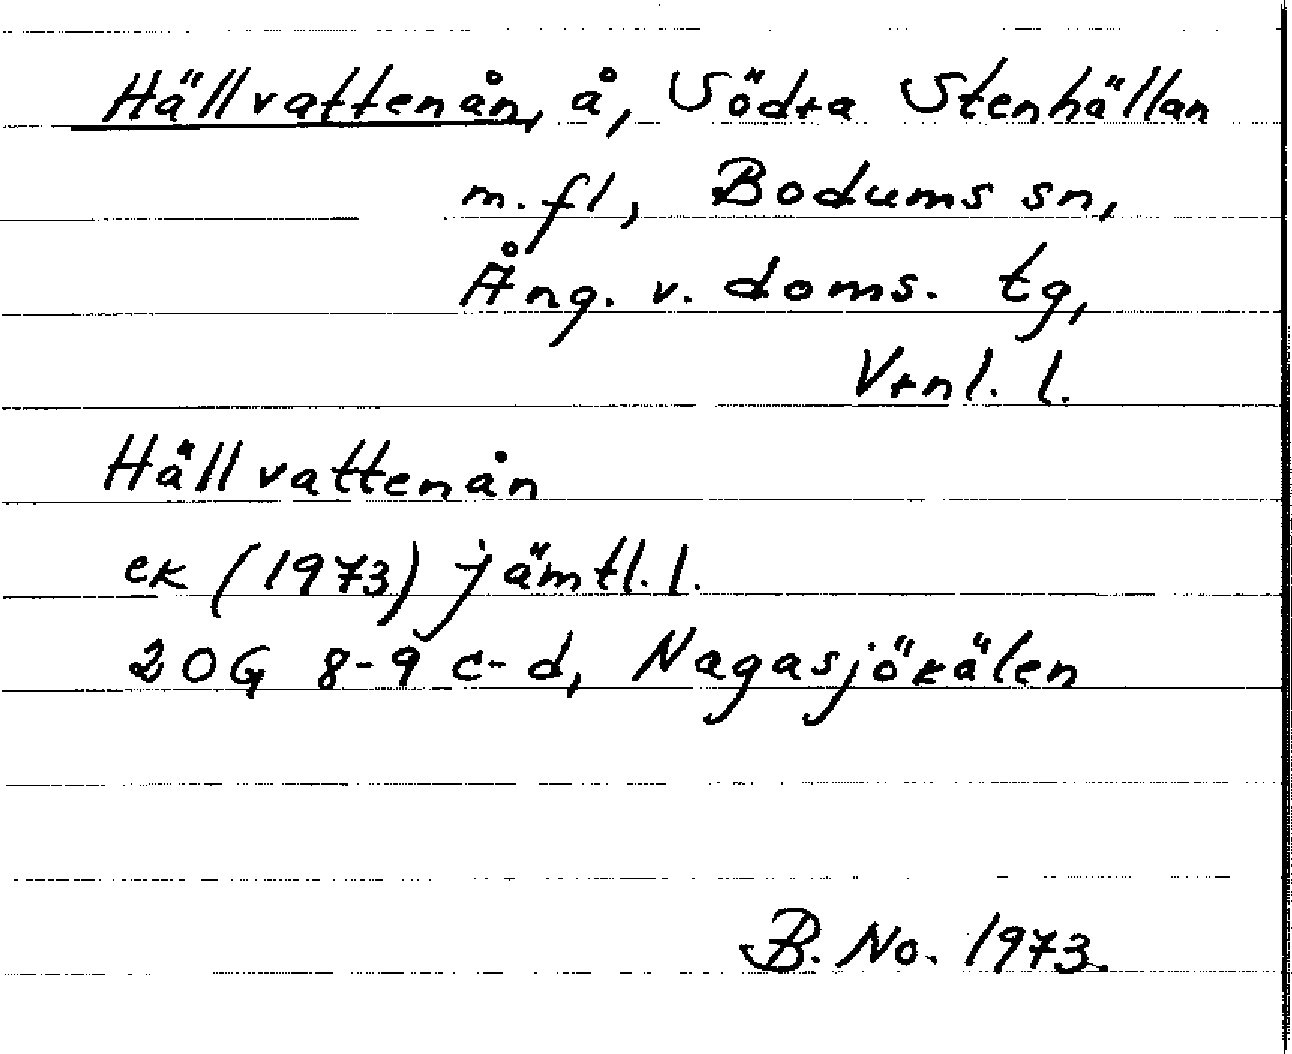 Hällvattenån, å, Södra Stenhällan
m. fl, Bodums sn,
Ång. v. doms. tg,
Vrnl. l.
Hällvattenån
ek (1973) jämtl. l.
20G 8-9 c-d, Nagasjökälen
B. No. 1973.